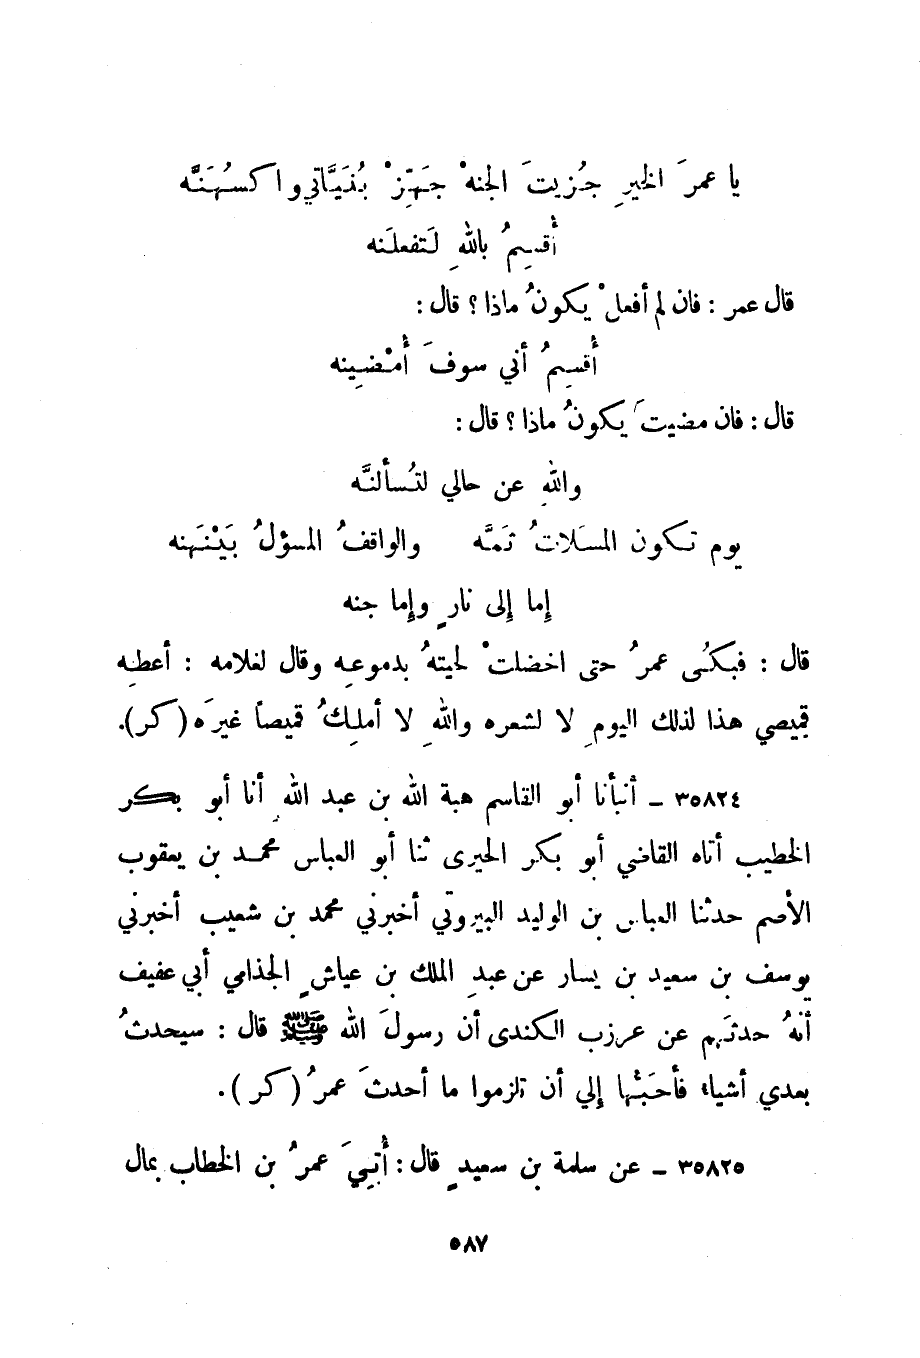 يا عمرَ الخيرِ جُزيتَ الجنهْ جَهِّزْ بُنَيَّاتي واكسُهَنَّه
أُقسِمُ باللهِ لَتفعلَنه
قال عمر : فان لم أفعلْ يكونُ ماذا ؟ قال :
أُقسِمُ أني سوفَ أُمْضِينه
قال : فان مضيتَ يكونُ ماذا ؟ قال :
واللهِ عن حالي لتُسألنَّه
يوم تكون المسَلاتُ ثَمَّه والواقفُ المسؤلُ بَيْنَهنه
إِما إِلى نارٍ وإِما جنه
قال : فبكُى عمرُ حتى اخضلتْ لحيتهُ بدموعِه وقال لغلامه : أعطِه
قميصي هذا لذلك اليومِ لا لشعره واللهِ لا أملِكُ قميصاً غيرَه (كر).
٣٥٨٢٤ - أنبأنا أبو القاسم هبة الله بن عبد اللهِ أنا أبو بكر
الخطيب أتاه القاضي أبو بكر الحيرى ثنا أبو العباس محمد بن يعقوب
الأصم حدثنا العباس بن الوليد البيروتي أخبرني محمد بن شعيب أخبرني
يوسف بن سعيد بن يسار عن عبدِ الملك بن عياشٍ الجذامي أبي عفيف
أنهُ حدثَهم عن عرزب الكندى أن رسولَ الله ﷺ قال : سيحدثُ
بعدي أشياء فأحَبُّها إِلي أن تلزموا ما أحدثَ عمرُ (كر).
٣٥٨٢٥ - عن سلمة بن سعيدٍ قال : أُتِيَ عمرُ بن الخطاب بمال
٥٨٧